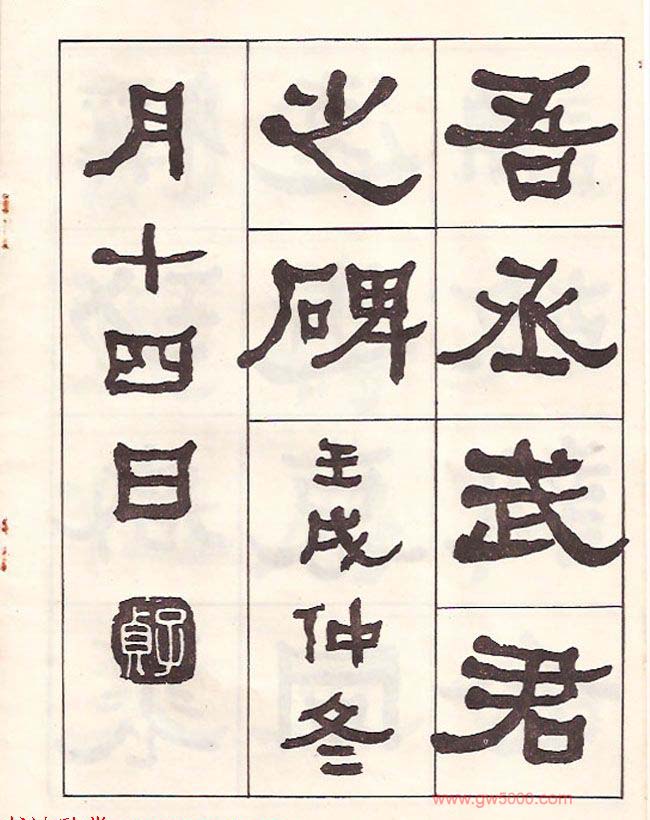 吾丞武君
之碑壬戌仲冬
月十四日
子貞
www.gw5006.com